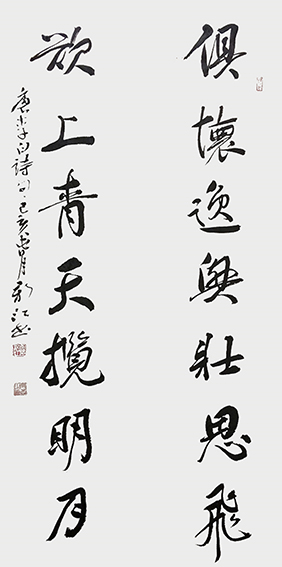 俱懷逸興壯思飛
欲上青天攬明月
唐李白詩句己亥